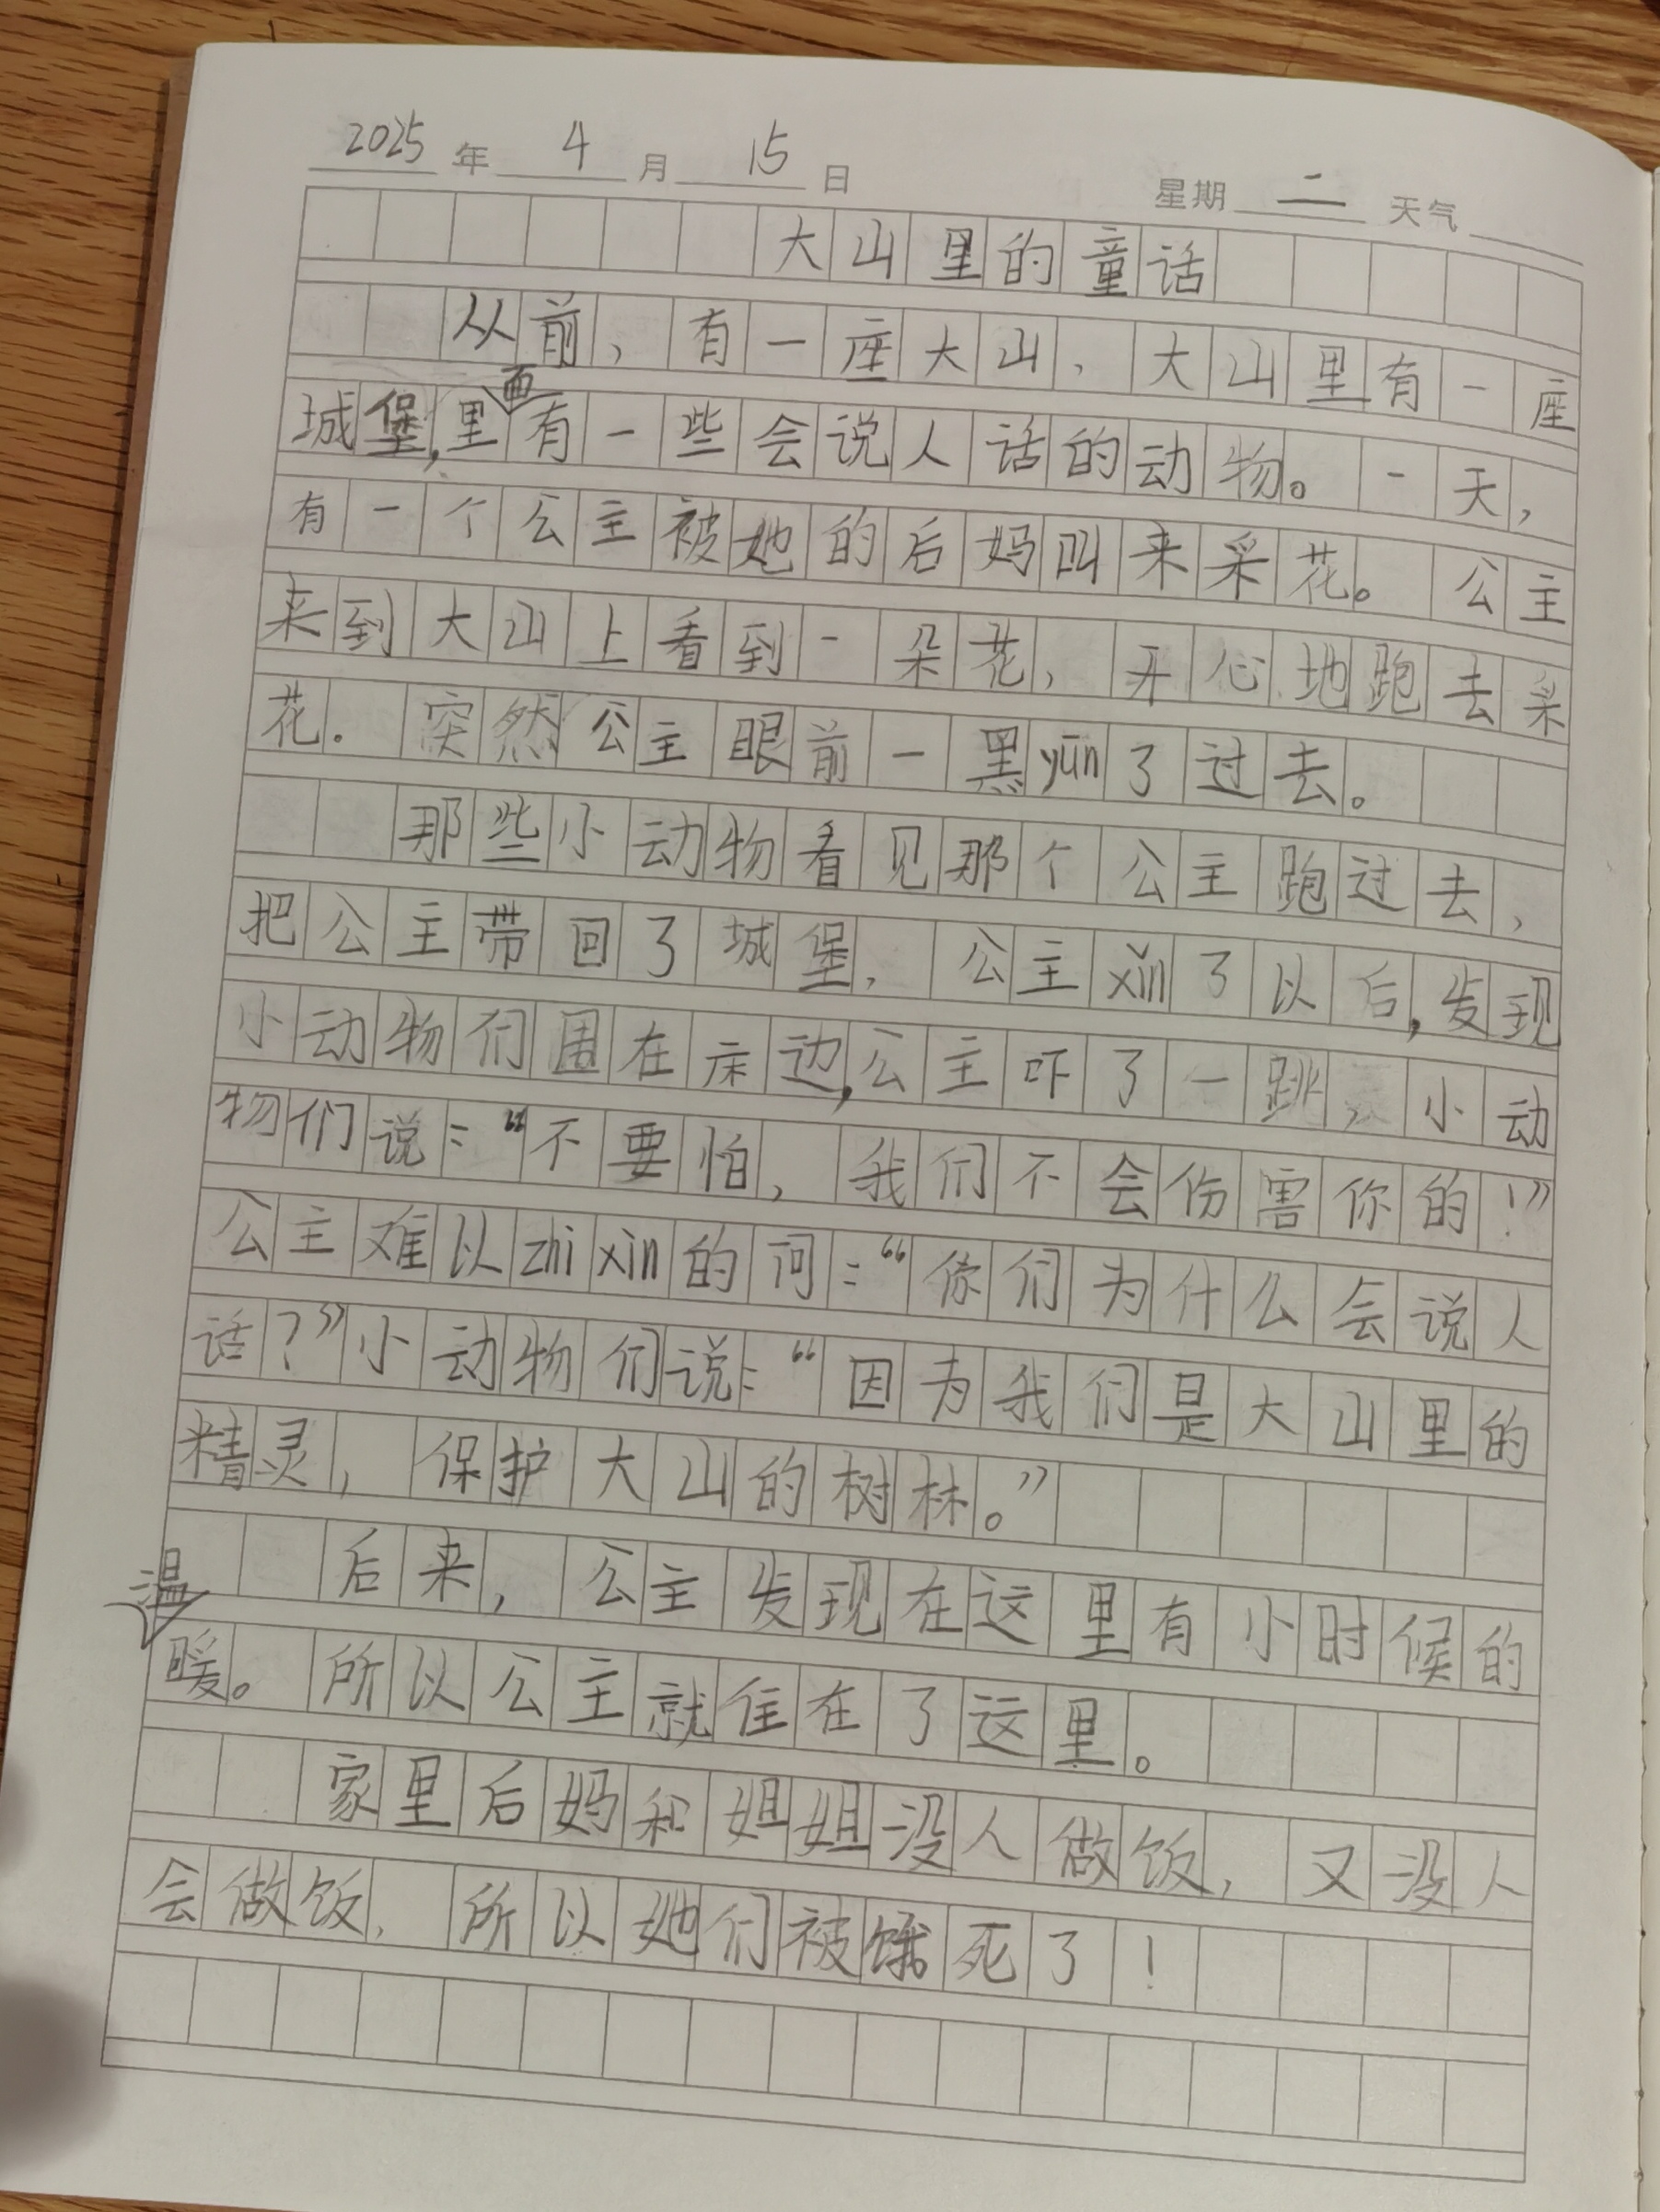 2025 年 4 月 15 日 星期 二 天气
大山里的童话
从前，有一座大山，大山里有一座
城堡，里面有一些会说人话的动物。一天，
有一个公主被她的后妈叫来采花。公主
来到大山上看到一朵花，开心地跑去采
花。突然公主眼前一黑yūn了过去。
那些小动物看见那个公主跑过去，
把公主带回了城堡，公主xǐn了以后，发现
小动物们围在床边，公主吓了一跳，小动
物们说：“不要怕，我们不会伤害你的！”
公主难以zhi xìn的问：“你们为什么会说人
话？”小动物们说：“因为我们是大山里的
精灵，保护大山的树林。”
后来，公主发现在这里有小时候的
温暖。所以公主就住在了这里。
家里后妈和姐姐没人做饭，又没人
会做饭，所以她们被饿死了！